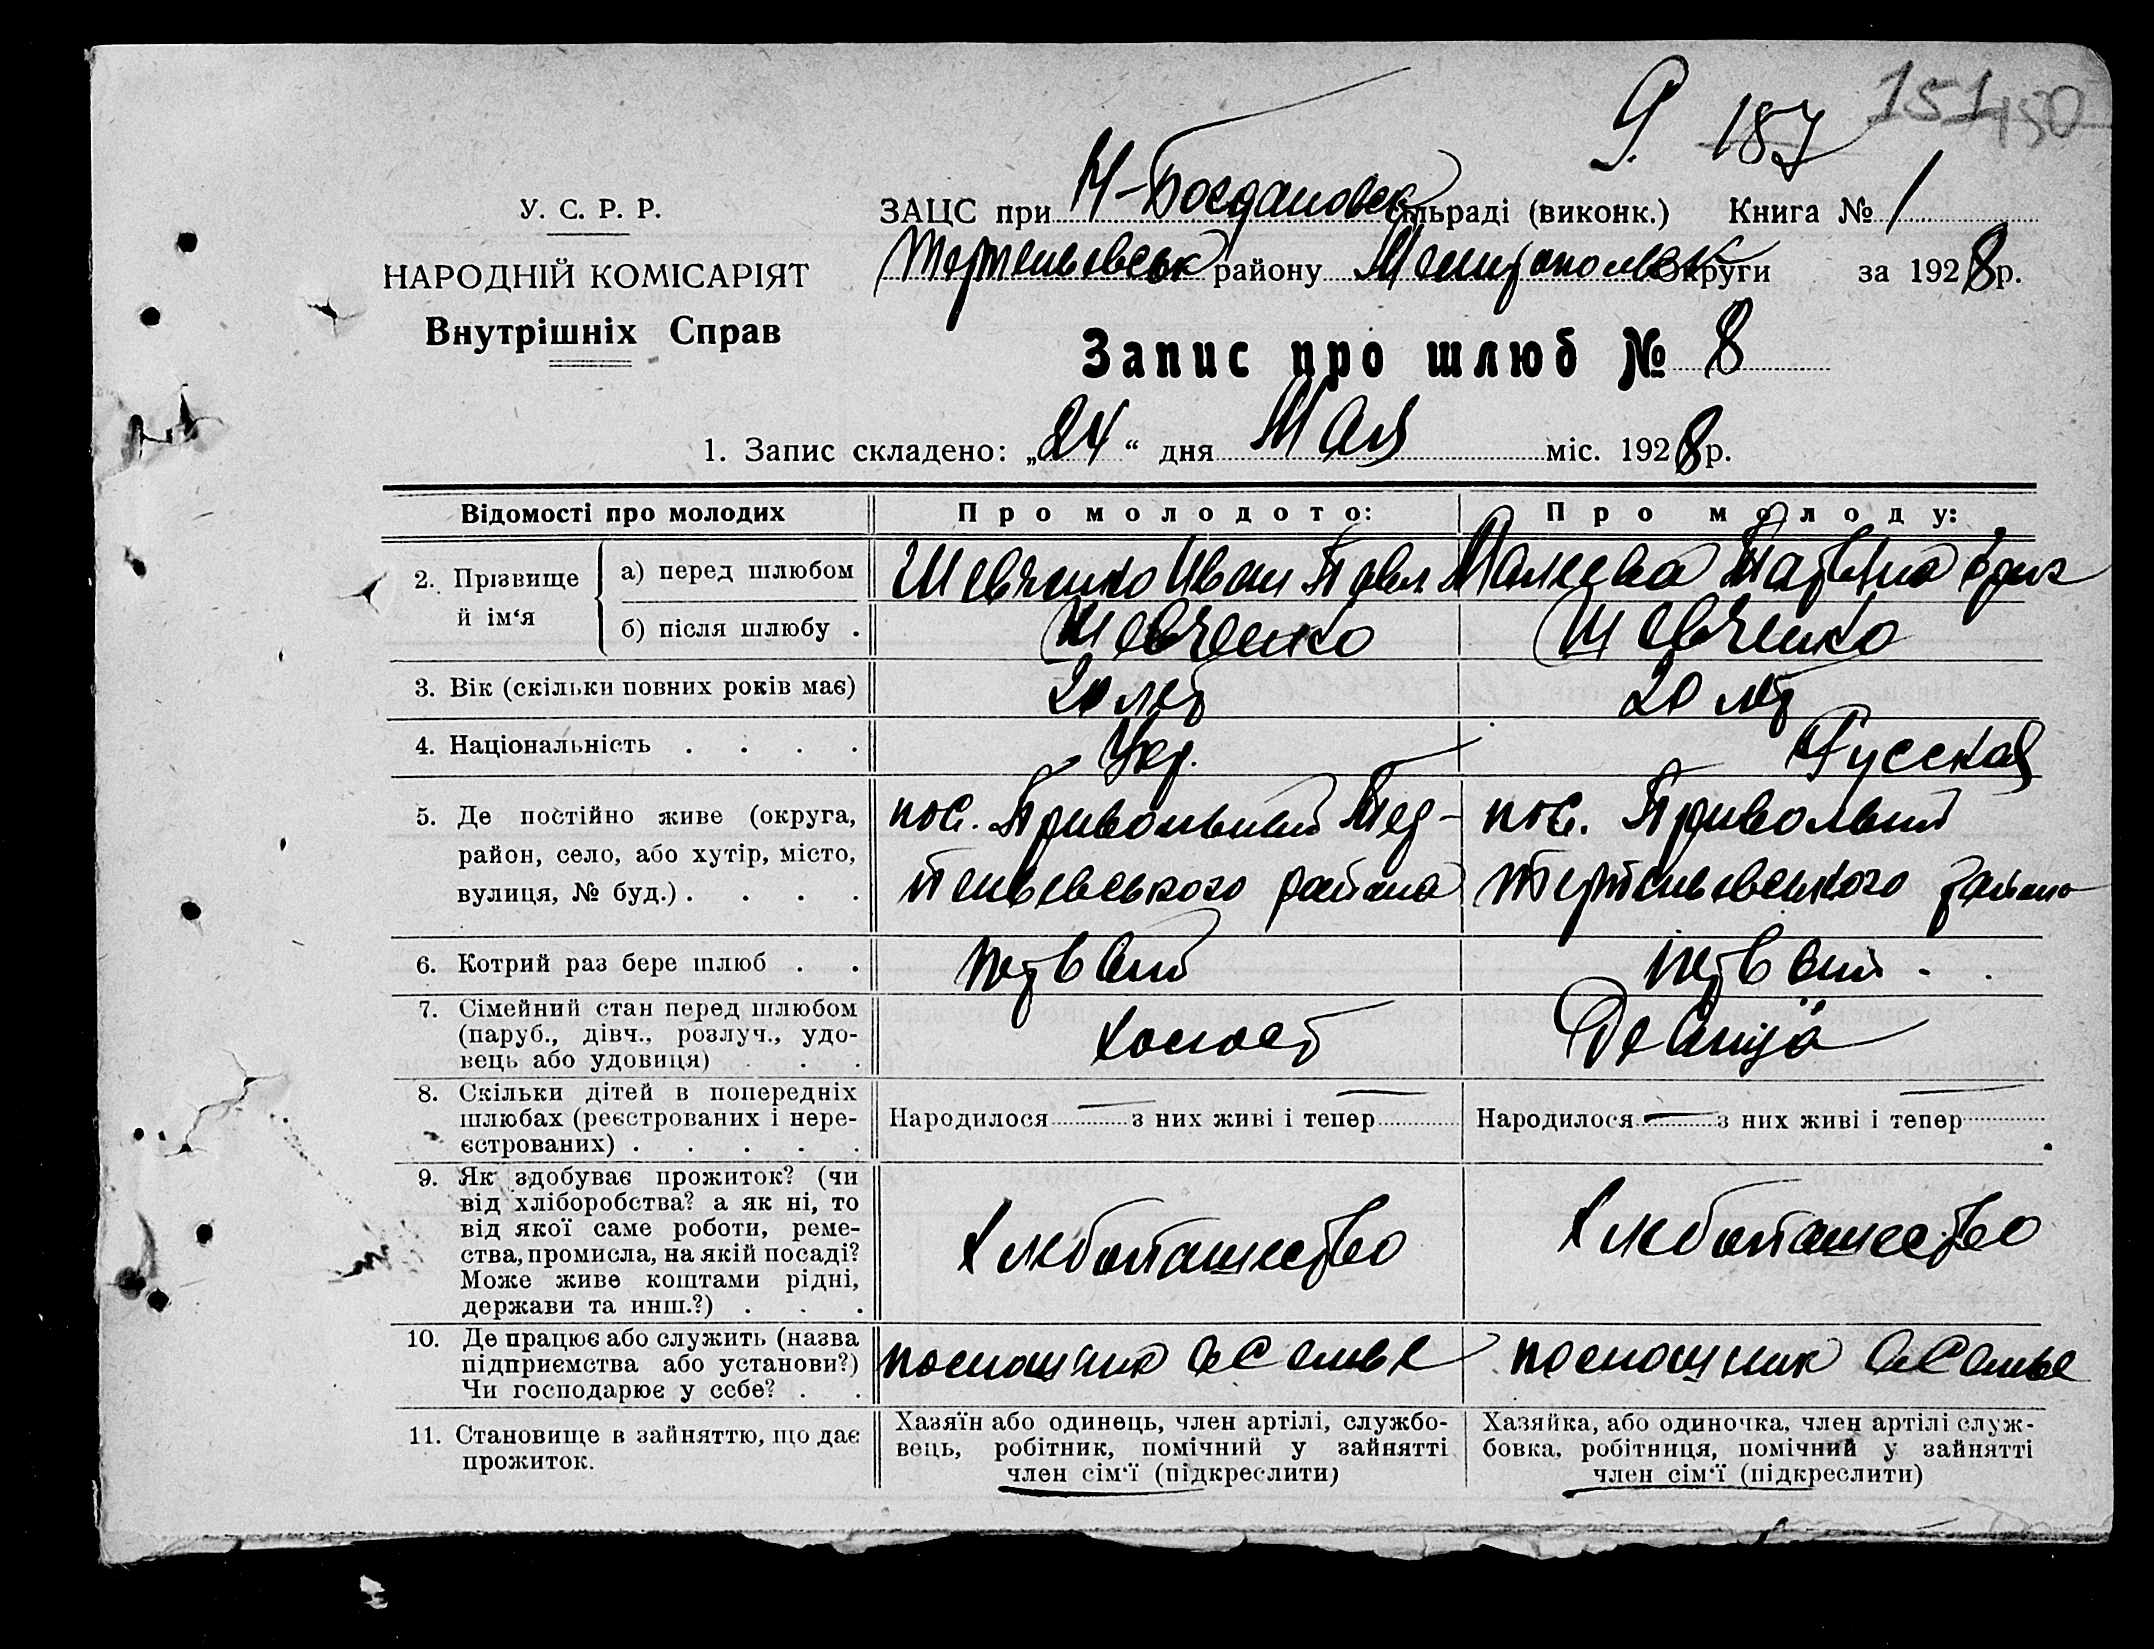 9. 187 151 150
У. С. Р. Р.
НАРОДНІЙ КОМІСАРІЯТ
Внутрішніх Справ
ЗАЦС при Н-Богдановск сільраді (виконк.) Книга № 1
Терпеньевськ району Мелитопольск Округи за 1928 р.
Запис про шлюб № 8
1. Запис складено: „24“ дня Мая міс. 1928 р.
Відомості про молодих Про молодого: Про молоду:
2. Прізвище й ім‘я
а) перед шлюбом Шевченко Иван Павл
б) після шлюбу . Шевченко Шевченко
3. Вік (скільки повних років має) 20 лет 20 лет
4. Національність . . . . Укр. Русская
5. Де постійно живе (округа, пос. Привольный Тер- пос. Привольний
район, село, або хутір, місто, пеньевського района Терпеньевського района
вулиця, № буд.) . . . .
6. Котрий раз бере шлюб . . первый первый
7. Сімейний стан перед шлюбом
(паруб., дівч., розлуч., удо-
вець або удовиця) . . . холост Девиця
8. Скільки дітей в попередніх
шлюбах (реєстрованих і нере-
єстрованих) . . . . .
Народилося — з них живі і тепер — Народилося — з них живі і тепер —
9. Як здобуває прожиток? (чи
від хліборобства? а як ні, то
від якої саме роботи, реме-
ства, промисла, на якій посаді?
Може живе коштами рідні,
держави та инш.?) . . .
Хлебопашество Хлебопашество
10. Де працює або служить (назва
підприємства або установи?)
Чи господарює у себе? . .
11. Становище в зайняттю, що дає
прожиток.
Хазяїн або одинець, член артілі, службо-
вець, робітник, помічний у зайнятті
член сім‘ї (підкреслити)
Хазяйка, або одиночка, член артілі служ-
бовка, робітниця, помічний у зайнятті
член сім‘ї (підкреслити)